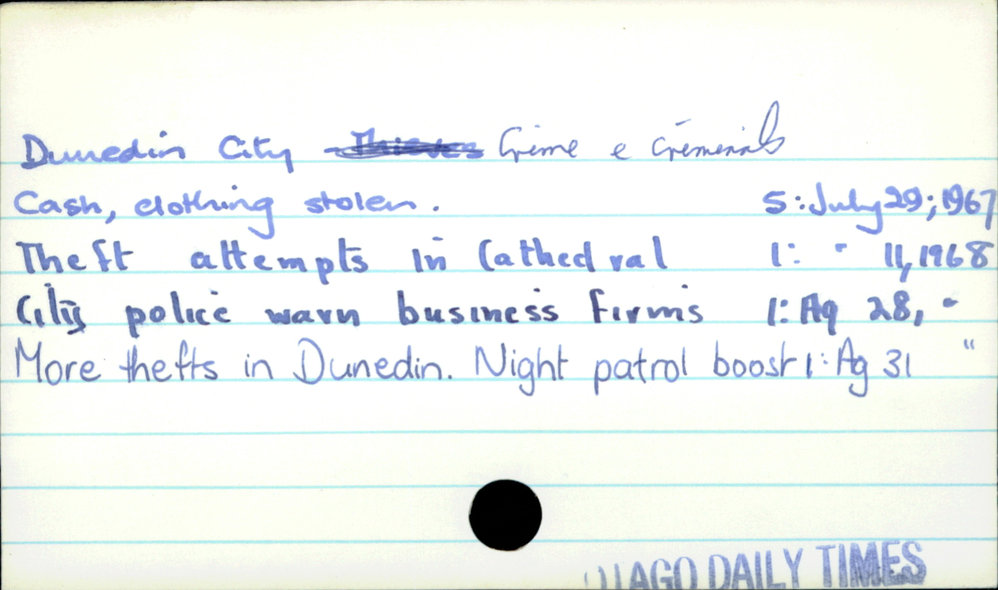 Dunedin City Thieves Crime & Criminals
Cash, clothing stolen. 5: July 29; 1967
Theft attempts in Cathedral 1: " 11, 1968
City police warn business firms 1: Ag 28, "
More thefts in Dunedin. Night patrol boost 1: Ag 31 "
OTAGO DAILY TIMES